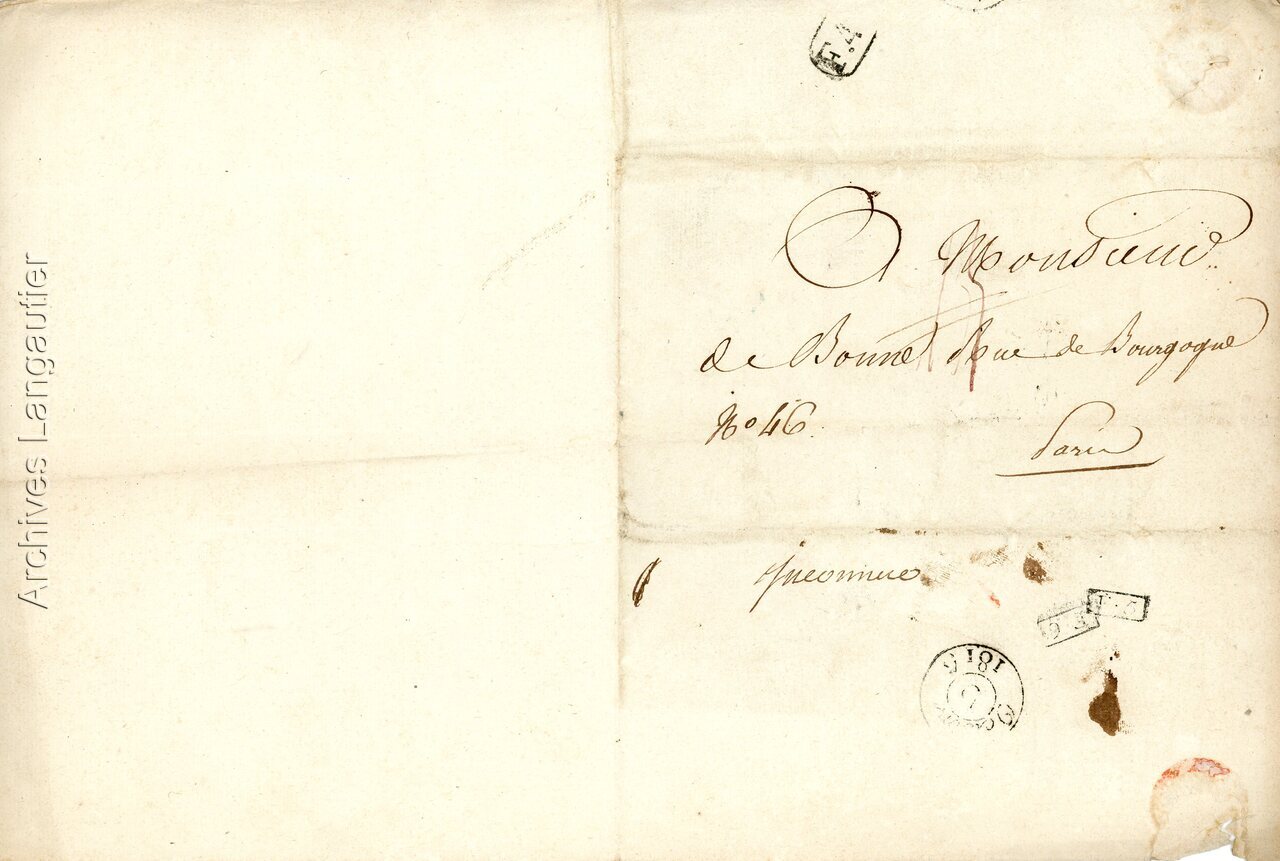 F.4
A Monsieur
de Bonne Rue de Bourgogne
No 46.
Paris
Inconnue
1816
Archives Langautier